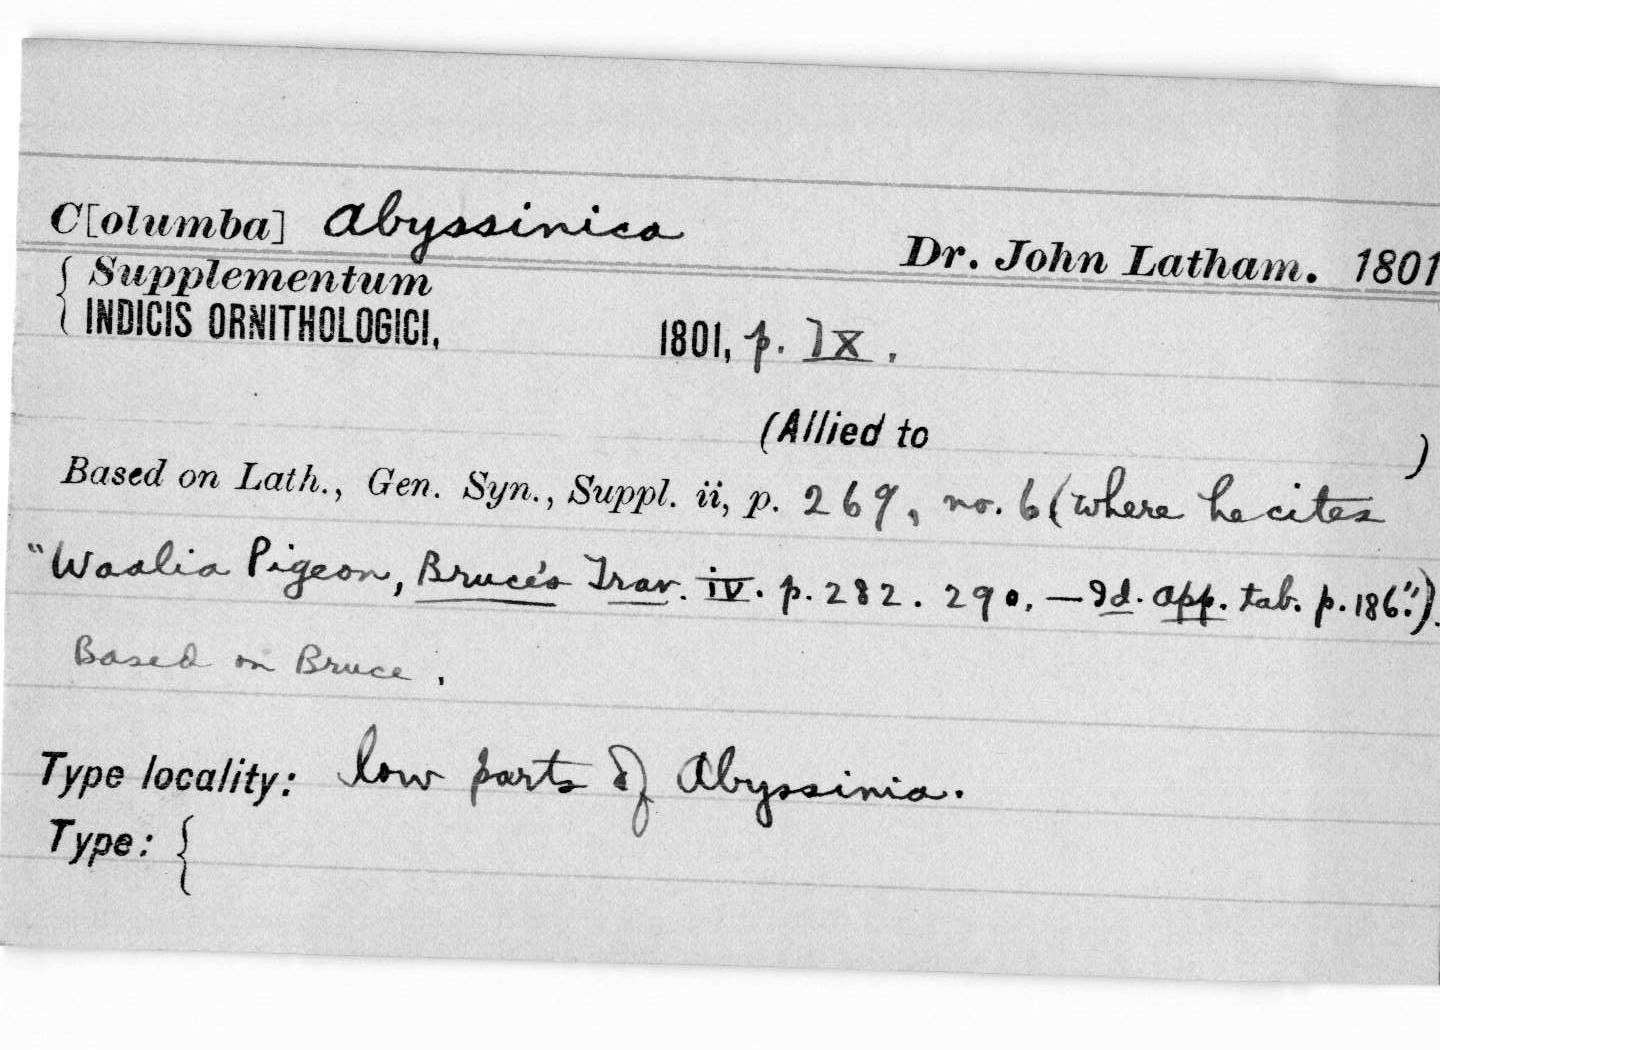 C[olumba] Abyssinica
Dr. John Latham. 1801
{ Supplementum
INDICIS ORNITHOLOGICI, 1801, p. lx.
(Allied to )
Based on Lath., Gen. Syn., Suppl. ii, p. 269, no. 6 (where he cites
"Waalia Pigeon, Bruce's Trav. iv. p. 282. 290. — Id. App. tab. p. 186".)
Based on Bruce.
Type locality: low parts of Abyssinia.
Type: {